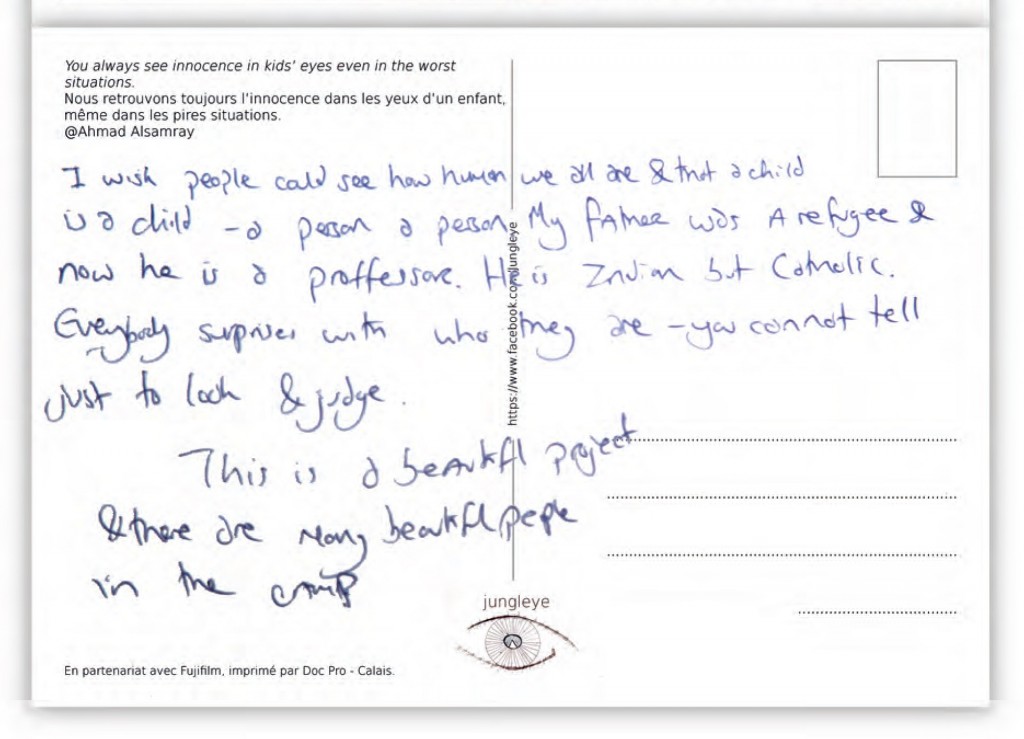 You always see innocence in kids' eyes even in the worst
situations.
Nous retrouvons toujours l'innocence dans les yeux d'un enfant,
même dans les pires situations.
@Ahmad Alsamray
I wish people could see how human we all are & that a child
is a child - a person a person. My father was A refugee &
now he is a proffessore. He is Indian but Catholic.
Everybody surprises with who they are - you cannot tell
just to look & judge.
This is a beautifl project
& there are many beautifl people
in the camp
https://www.facebook.com/jungleye
jungleye
En partenariat avec Fujifilm, imprimé par Doc Pro - Calais.